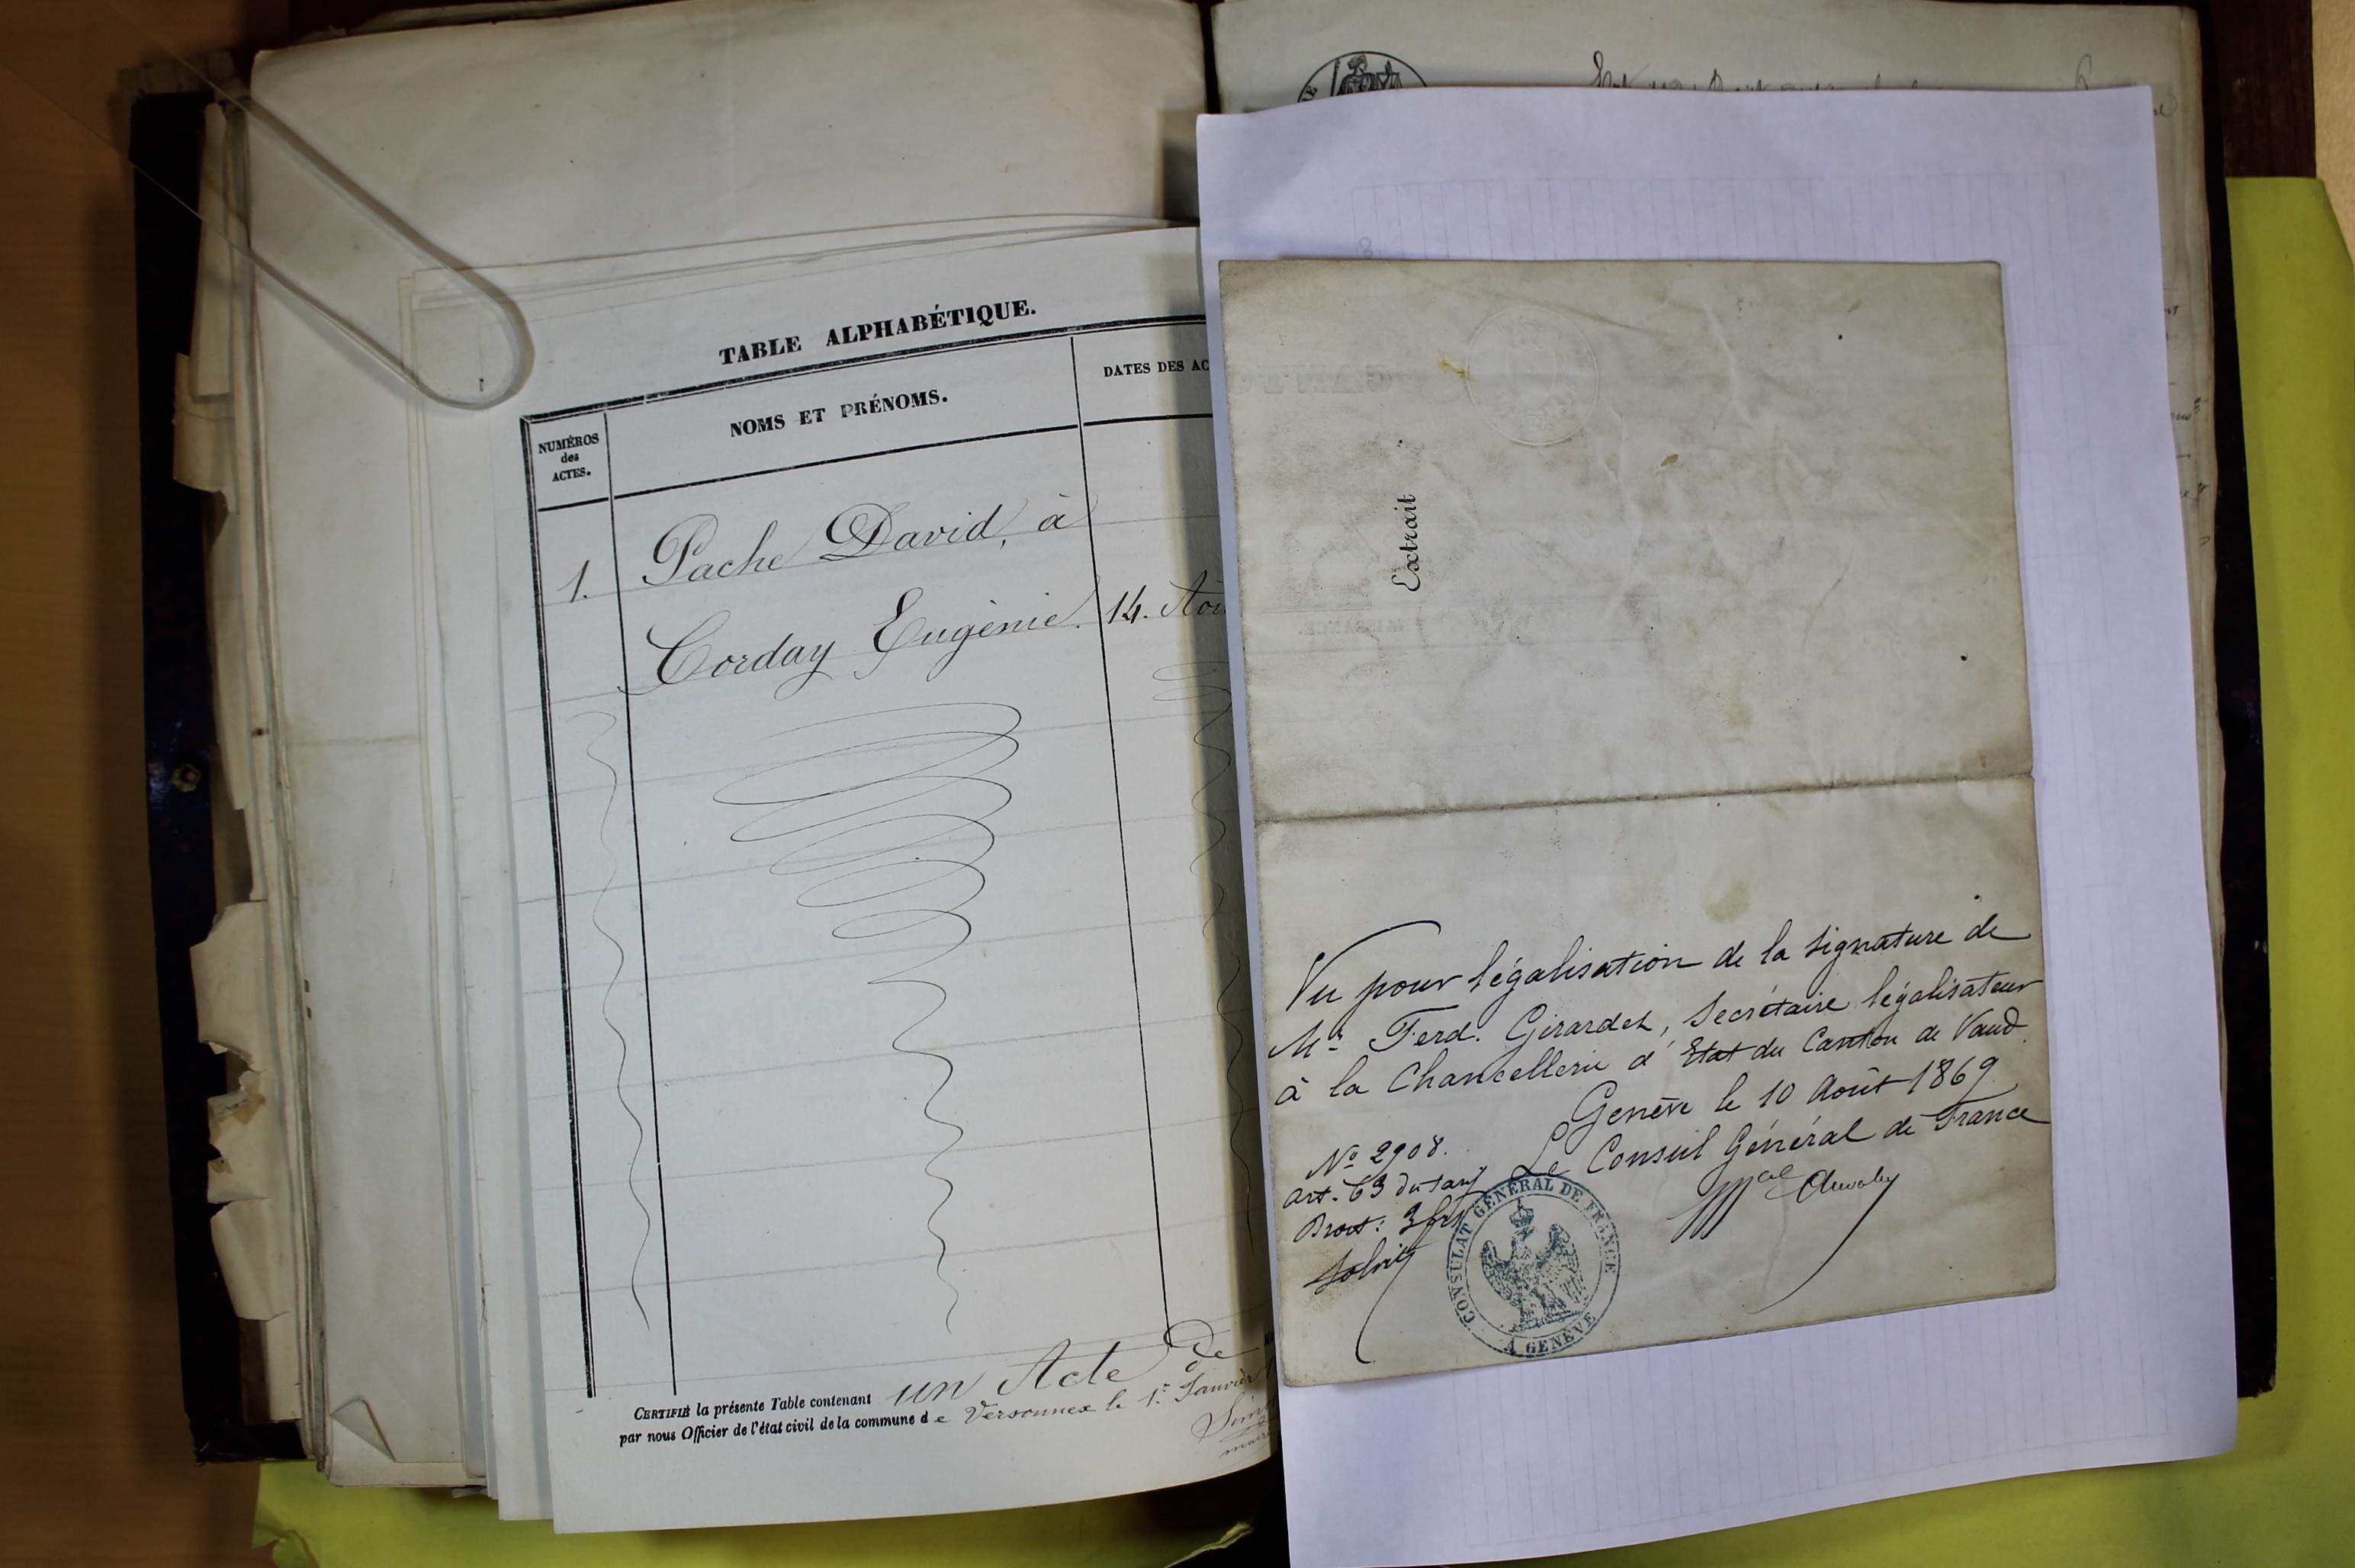 TABLE ALPHABÉTIQUE.
NUMÉROS
des
ACTES.
NOMS ET PRÉNOMS.
DATES DES AC
1. Pache David, à
Corday Eugènie. 14. Aoû
CERTIFIÉ la présente Table contenant un Acte de
par nous Officier de l'état civil de la commune de Versonnex le 1er Janvier
Extrait
Vu pour légalisation de la signature de
Mr Ferd. Girardet, Secrétaire légalisateur
à la Chancellerie d'Etat du Canton de Vaud.
Genève le 10 Août 1869
Le Consul Général de France
No 2908.
art. 63 du tarif
Droit: 3 frs
CONSULAT GÉNÉRAL DE FRANCE
A GENÈVE